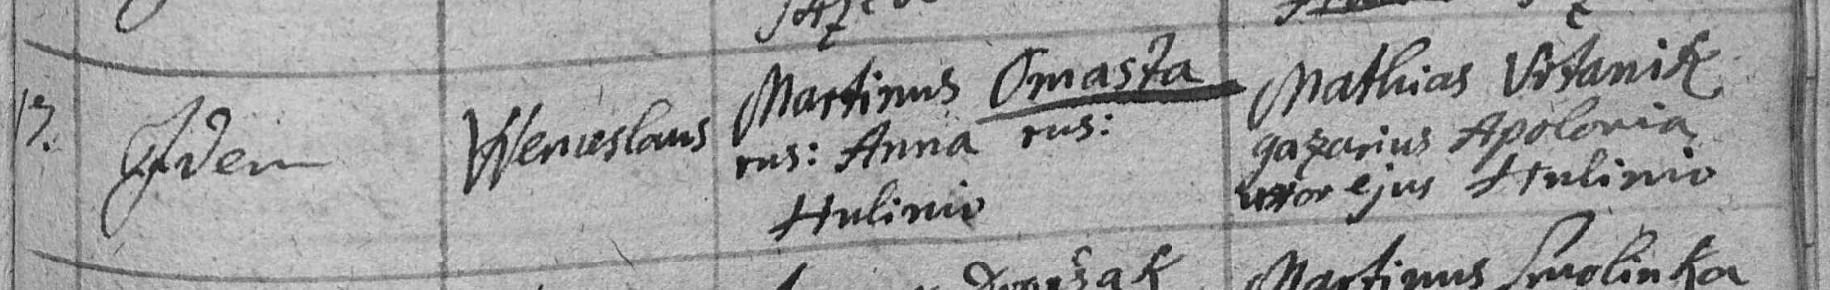 13. Idem Wenceslaus Martinus Omasta Mathias Vrtanik
rus: Anna rus: gazarius Apolonia
Hulinio uxor ejus Hulinio
Dworžak Martinus Smolinka